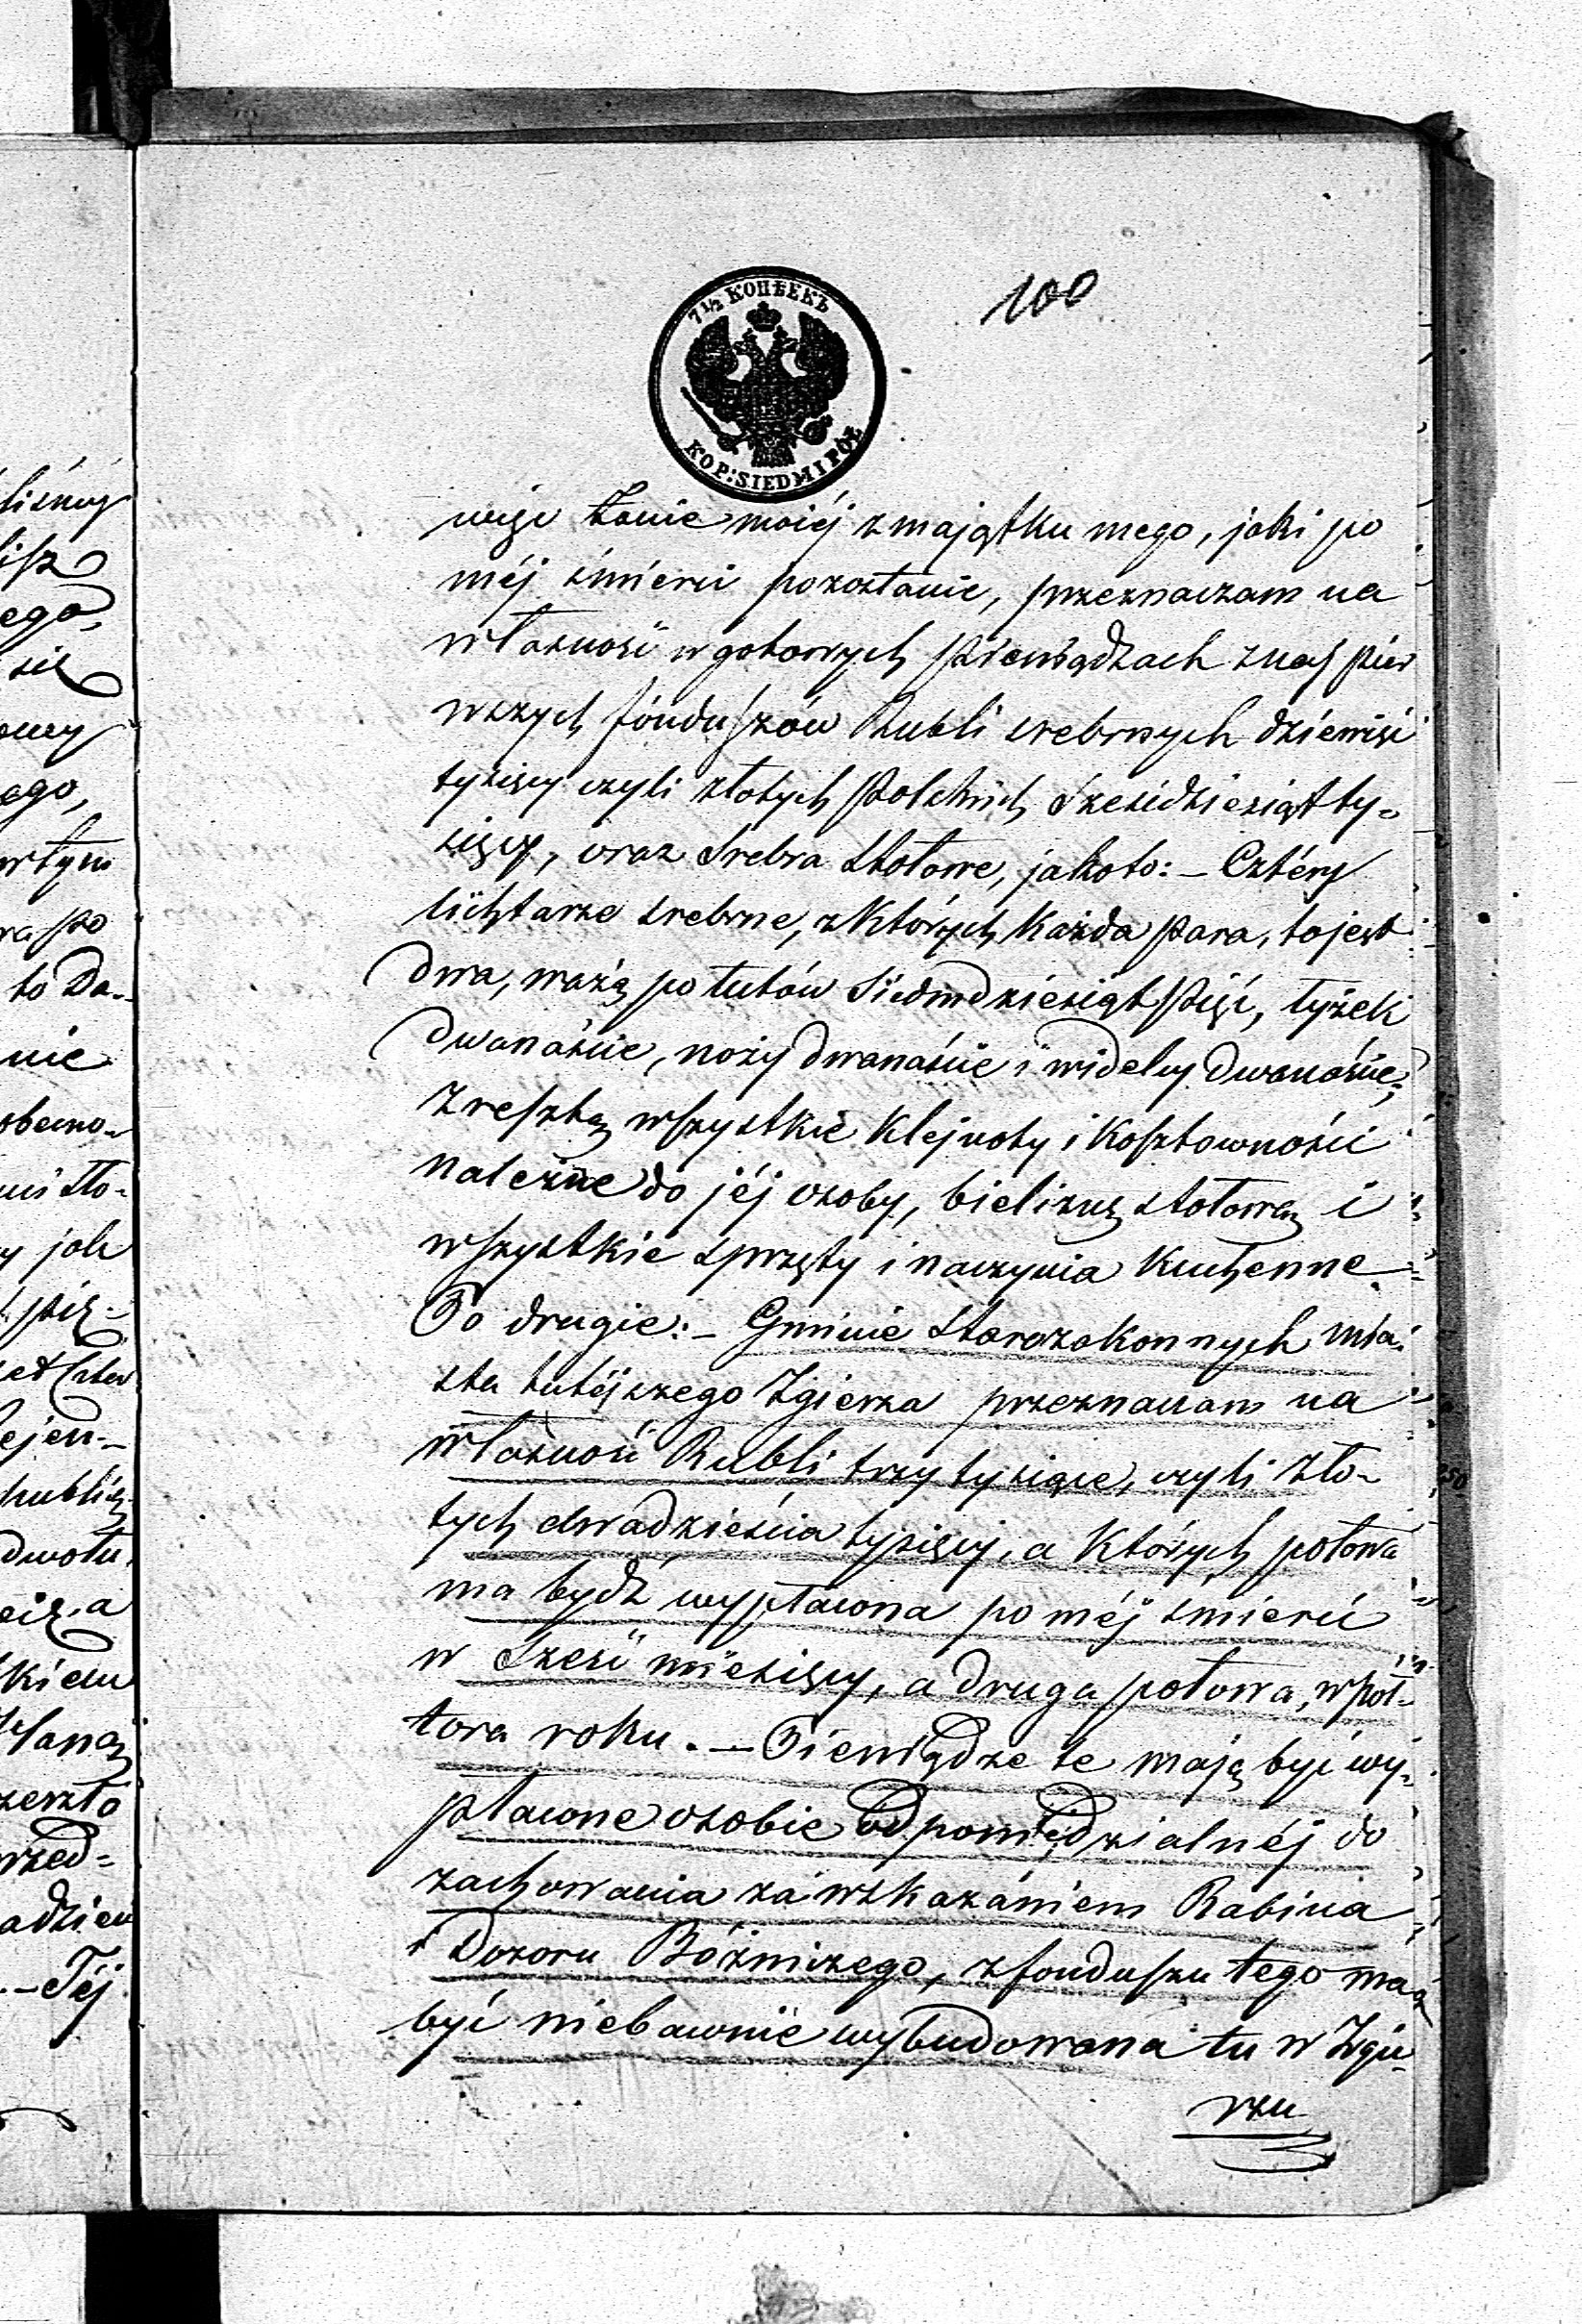 100
7½ КОПѢЕКЪ
KOP: SIEDM I PÓŁ
więc żonie mojéj z majątku mego, jaki po
méj śmierci pozostanie, przeznaczam na
własność w gotowych pieniądzach z naj pier
wszych fónduszów Rubli srebrnych dziewięć
tysięcy czyli złotych Polskich Sześćdziesiąt ty-
sięcy, oraz srebra stołowe, jakoto: - Cztéry
lichtarze srebrne, z których każda para, to jest
dwa, ważą po łutów Siedmdziesiąt pięć, łyżek
dwanaście, noży dwanaście i widelcy dwanaście;
Zresztą wszystkie klejnoty i kosztowności
należne do jéj osoby, bieliznę stołową i
wszystkie sprzęty i naczynia kuchenne.
Po drugie: - Gminie Starozakonnych mia-
sta tutéjszego Zgierza przeznaczam na
własność Rubli trzy tysiące, czyli zło-
tych dwadzieścia tysięcy, a których połowa
ma bydź wypłacona po méj śmierci
w Sześć miesięcy, a druga połowa, w pół-
tora roku. - Pieniądze te mają być wy-
płacone osobie odpowiedzialnéj do
zachowania za wskazaniem Rabina
i Dozoru Bóżniczego, z funduszu tego ma
być niebawnie wybudowana tu w Zgie-
rzu